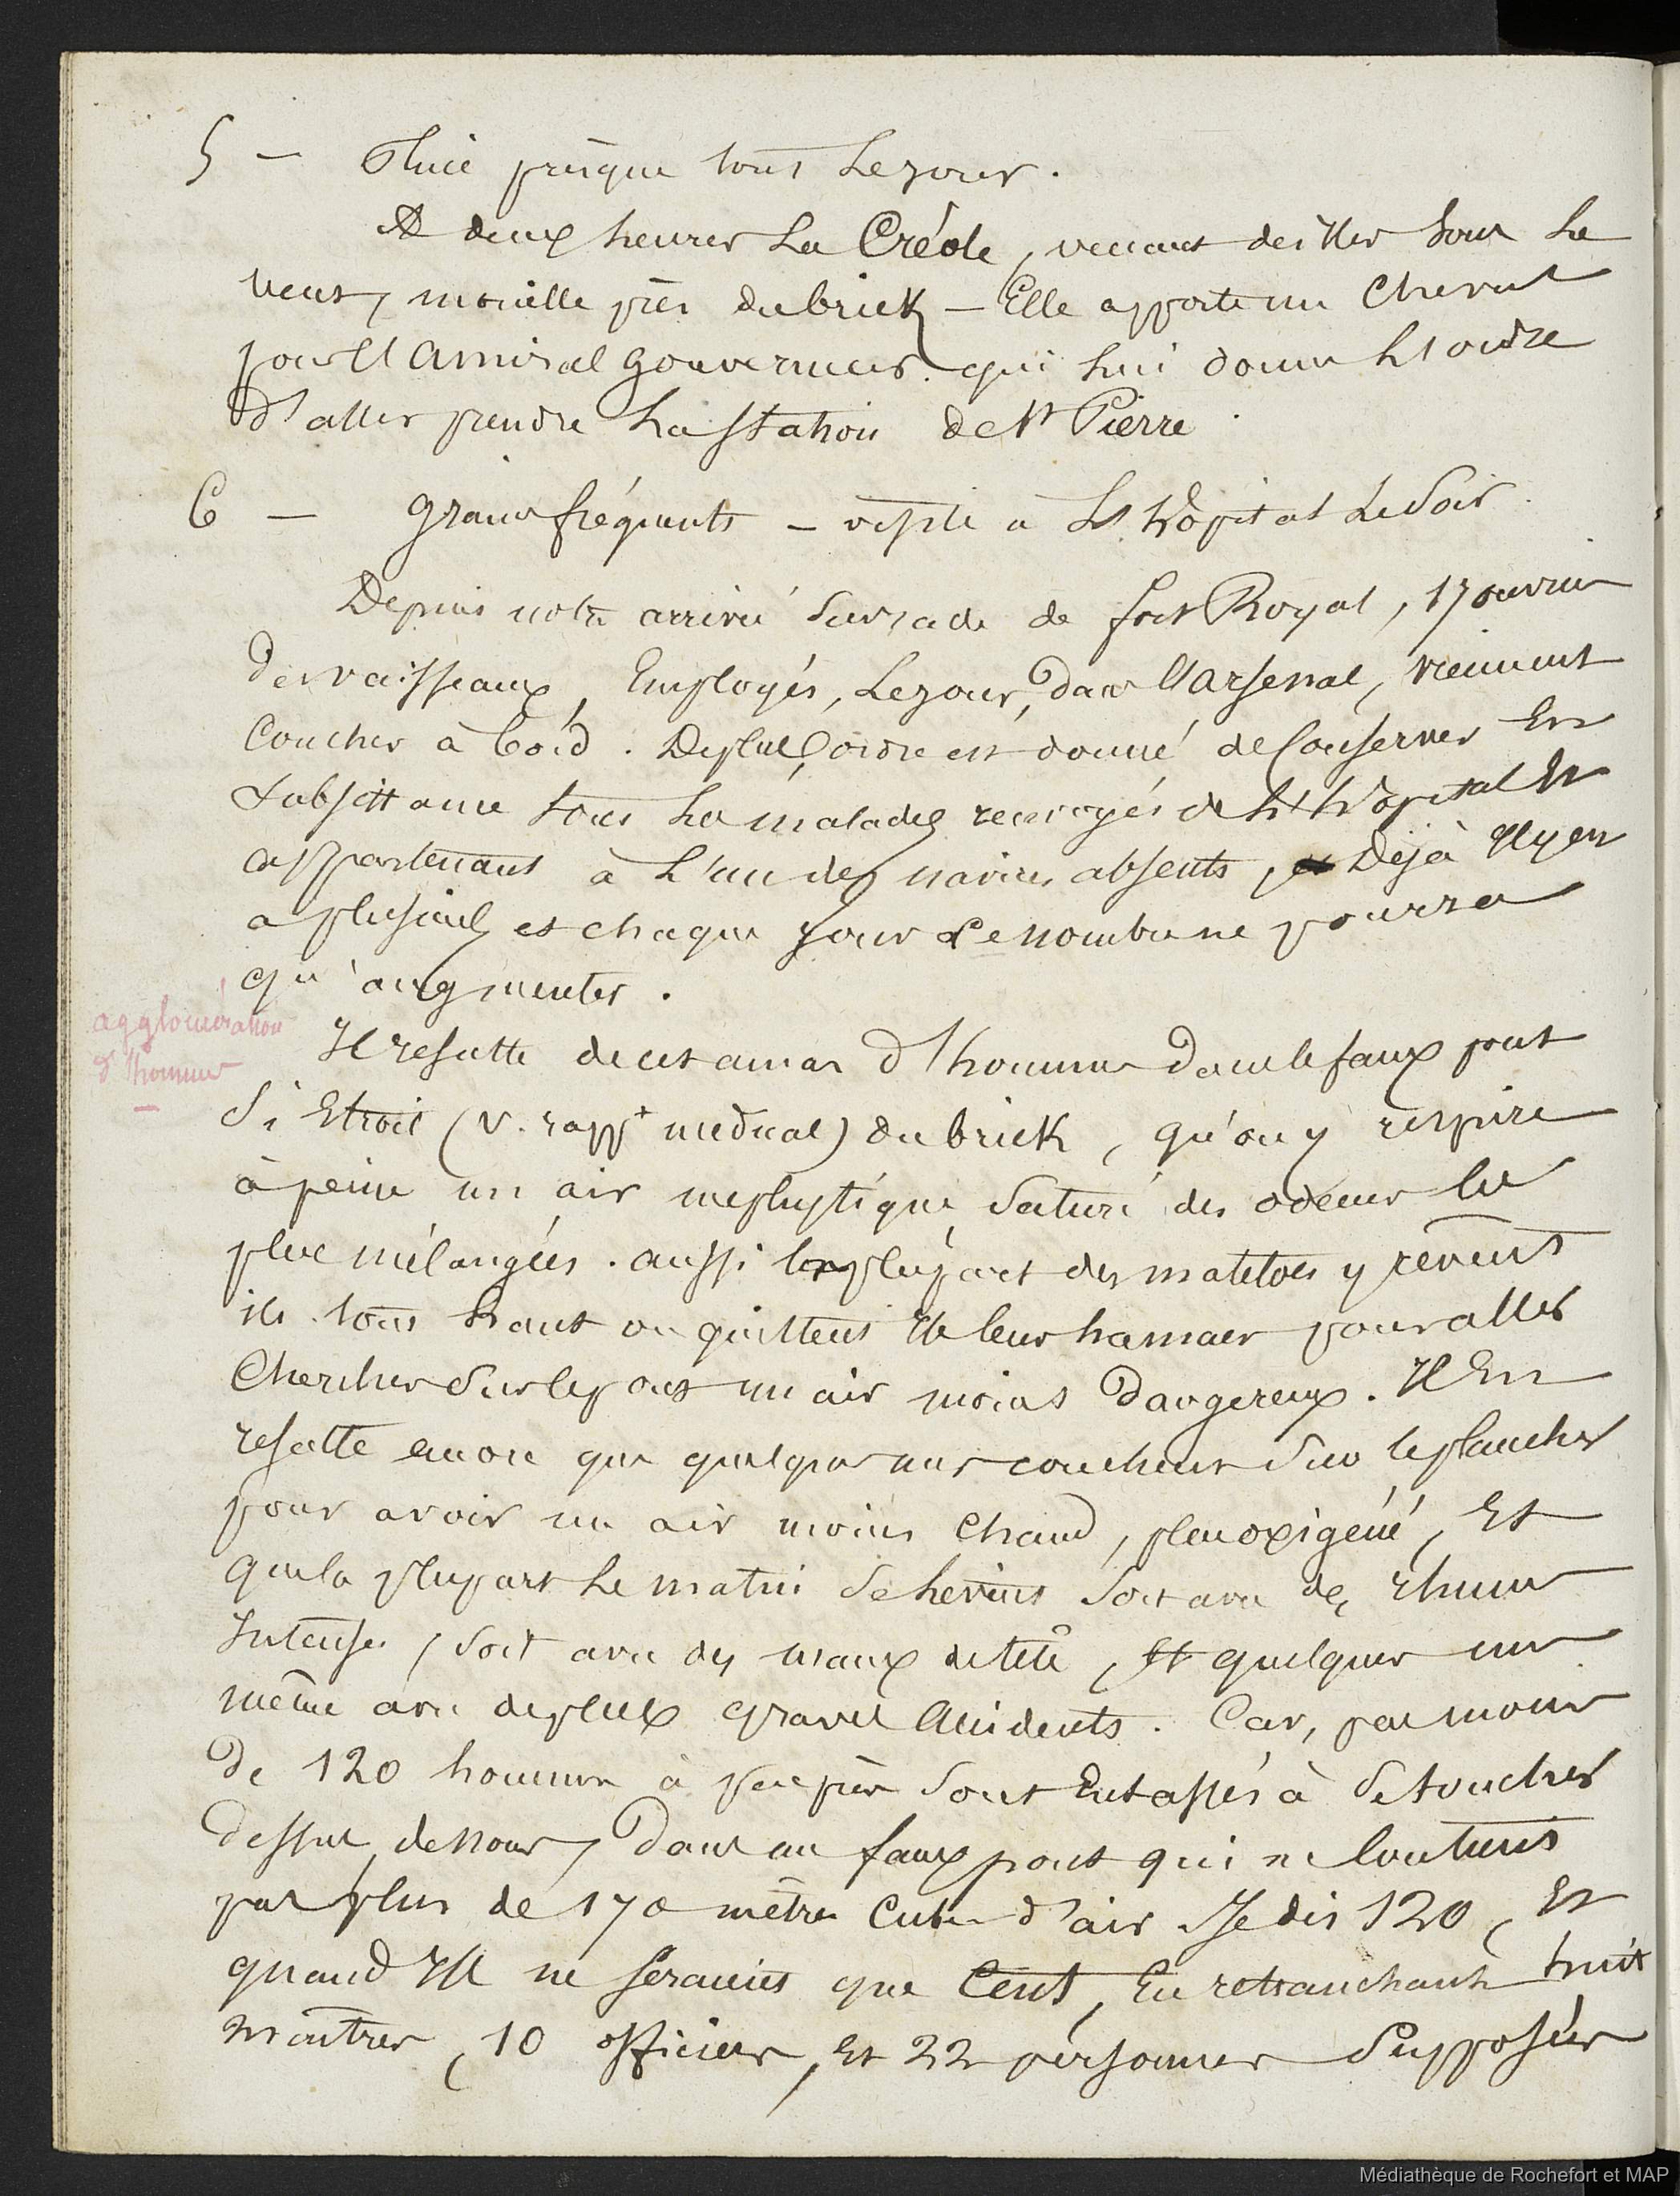 5 — Pluie presque tout le jour.
A deux heures La Créole, venant des Iles sous le
vent, mouille près du brick — Elle apporte un cheval
pour l'amiral gouverneur qui lui donne l'ordre
d'aller prendre la station de St Pierre.
6 — grains fréquents — visite à l'hôpital le soir.
Depuis notre arrivée sur rade de fort Royal, 17 ouvriers
des vaisseaux, Employés, le jour, dans l'arsenal, viennent
coucher à bord. De plus, ordre est donné de conserver En
subsistance tous les malades renvoyés de l'hôpital Et
appartenant à l'un des navires absents, Déjà Il y en
a plusieurs et chaque jour le nombre ne pourra
qu'augmenter.
agglomération
d'hommes
Il resulte de cet amas d'hommes dans le faux pont
si Etroit (v. rappt medical) du brick, qu'on y respire
à peine un air mephytique saturé des odeurs les
plus mélangées. aussi la plupart des matelots y rêvent
ils tout haut ou quittent Ils leurs hamacs pour aller
chercher sur le pont un air moins dangereux. Il En
resulte encore que quelques uns couchent sur le plancher
pour avoir un air moins chaud, plus oxigéné, Et
que la plupart le matin se lèvent soit avec des rhumes
Intenses, soit avec des maux de tête, Et quelques uns
même avec de plus graves accidents. Car, pas moins
de 120 hommes à peu près sont Entassés à se toucher
dessus, dessous, dans un faux pont qui ne contient
pas plus de 170 mètres cubes d'air. Je dis 120, Et
quand Ils ne seraient que Cent, En retranchant huit
maîtres, 10 officiers, Et 22 personnes supposées
Médiathèque de Rochefort et MAP